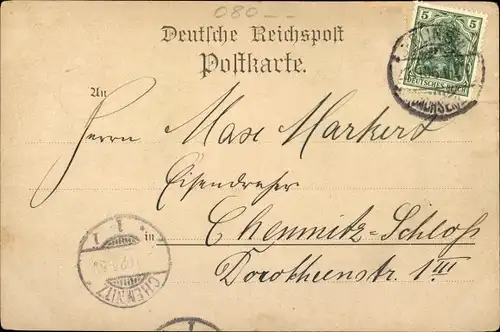 080--
Deutsche Reichspost
Postkarte.
5
DEUTSCHES REICH
An
Herrn Max Markert
Eisendreher
in Chemnitz-Schloß
Dorotheenstr. 1 III
1
CHEMNITZ